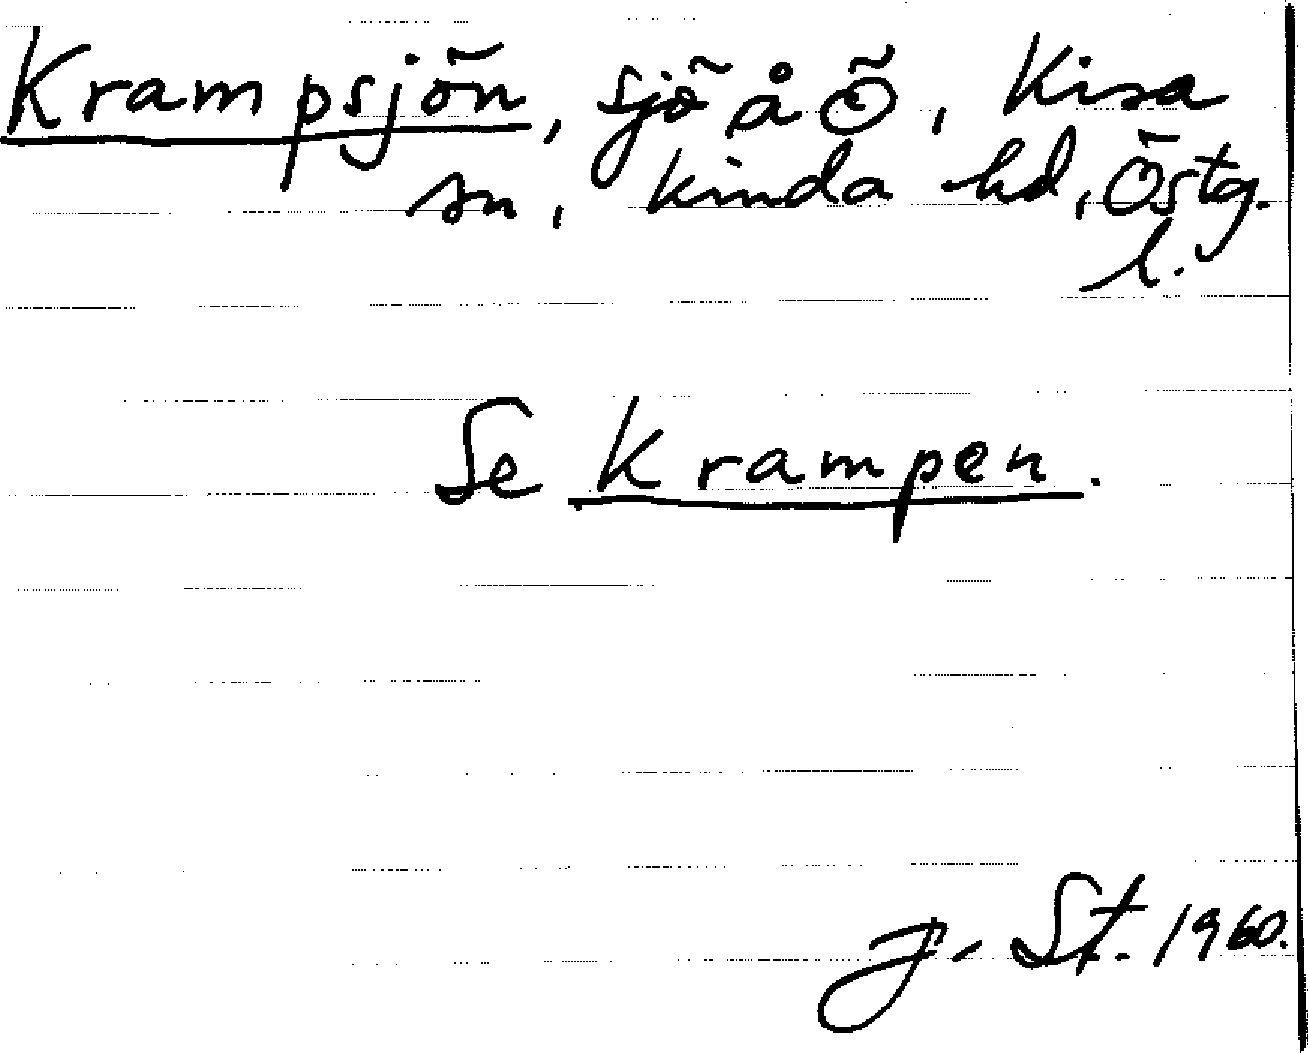 Krampsjön, sjö å Ö, Kisa
sn, Kinda hd, Östg.
l.
Se Krampen.
J. St. 1960.